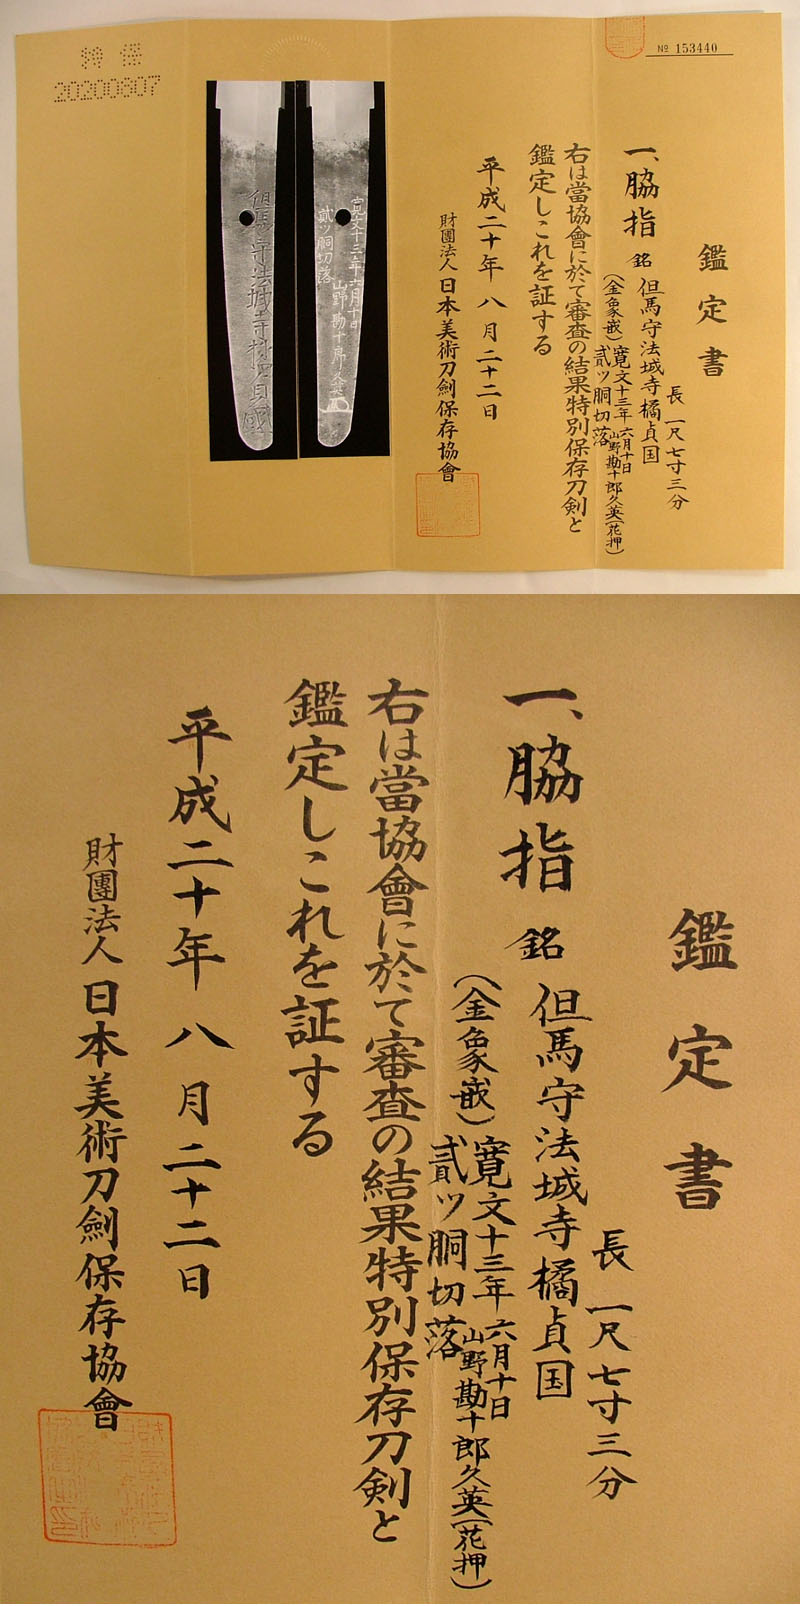 特保
20200807
№ 153440
鑑定書
一、脇指 銘 但馬守法城寺橘貞国
長 一尺七寸三分
(金象嵌) 寛文十三年六月十日
貳ツ胴切落
山野勘十郎久英(花押)
右は當協會に於て審査の結果特別保存刀剣と
鑑定しこれを証する
平成二十年八月二十二日
財團法人 日本美術刀劍保存協會
但馬守法城寺橘貞國
寛文十三年六月十日
貳ツ胴切落
山野勘十郎久英
鑑定書
長 一尺七寸三分
一、脇指 銘 但馬守法城寺橘貞国
(金象嵌) 寛文十三年六月十日
貳ツ胴切落
山野勘十郎久英(花押)
右は當協會に於て審査の結果特別保存刀剣と
鑑定しこれを証する
平成二十年八月二十二日
財團法人 日本美術刀劍保存協會